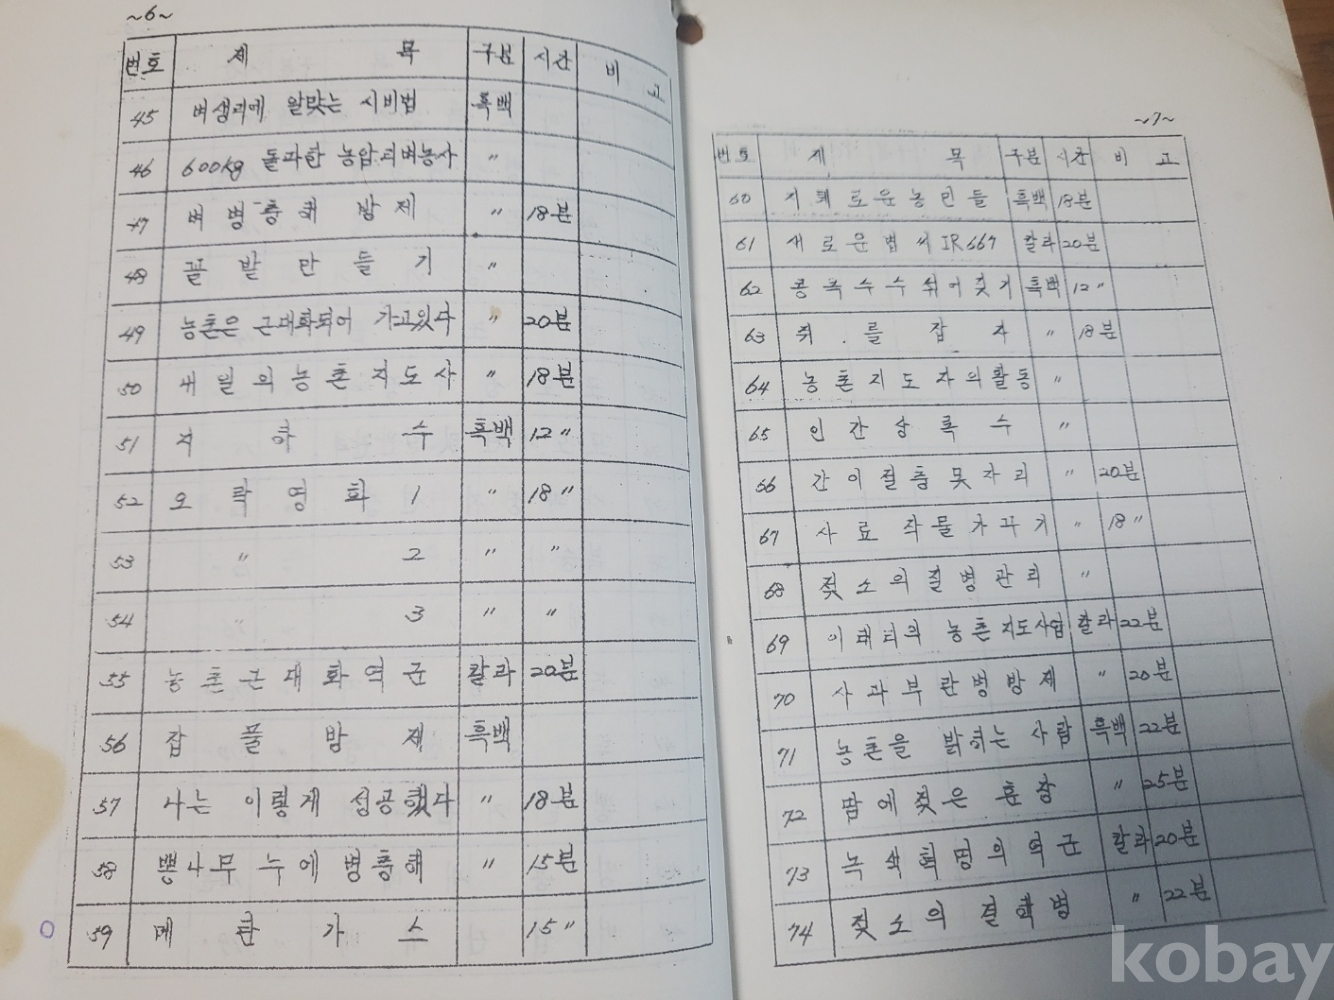 ~6~
번호 제목 구분 시간 비고
45 벼생리에 알맞는 시비법 흑백
46 600kg 돌파한 농암리벼농사 〃
47 벼병충해 방제 〃 18분
48 꼴밭만들기 〃
49 농촌은 근대화되어 가고있다 〃 20분
50 내일의농촌지도사 〃 18분
51 지하수 흑백 12〃
52 오락영화 1 〃 18〃
53 〃 2 〃 〃
54 〃 3 〃 〃
55 농촌근대화역군 칼라 20분
56 잡풀방제 흑백
57 나는 이렇게 성공했다 〃 18분
58 뽕나무 누에병충해 〃 15분
59 메탄가스 15〃
~7~
번호 제목 구분 시간 비고
60 지혜로운농민들 흑백 18분
61 새로운볍씨 IR667 칼라 20분
62 콩옥수수섞어짓기 흑백 12〃
63 쥐를잡자 〃 18분
64 농촌지도자의활동 〃
65 인간상록수 〃
66 간이절충못자리 〃 20분
67 사료작물가꾸기 〃 18〃
68 젖소의질병관리 〃
69 이태리의 농촌지도사업 칼라 22분
70 사과부란병방제 〃 20분
71 농촌을 밝히는 사람 흑백 22분
72 땀에젖은 훈장 〃 25분
73 녹색혁명의역군 칼라 20분
74 젖소의 결핵병 〃 22분
kobay